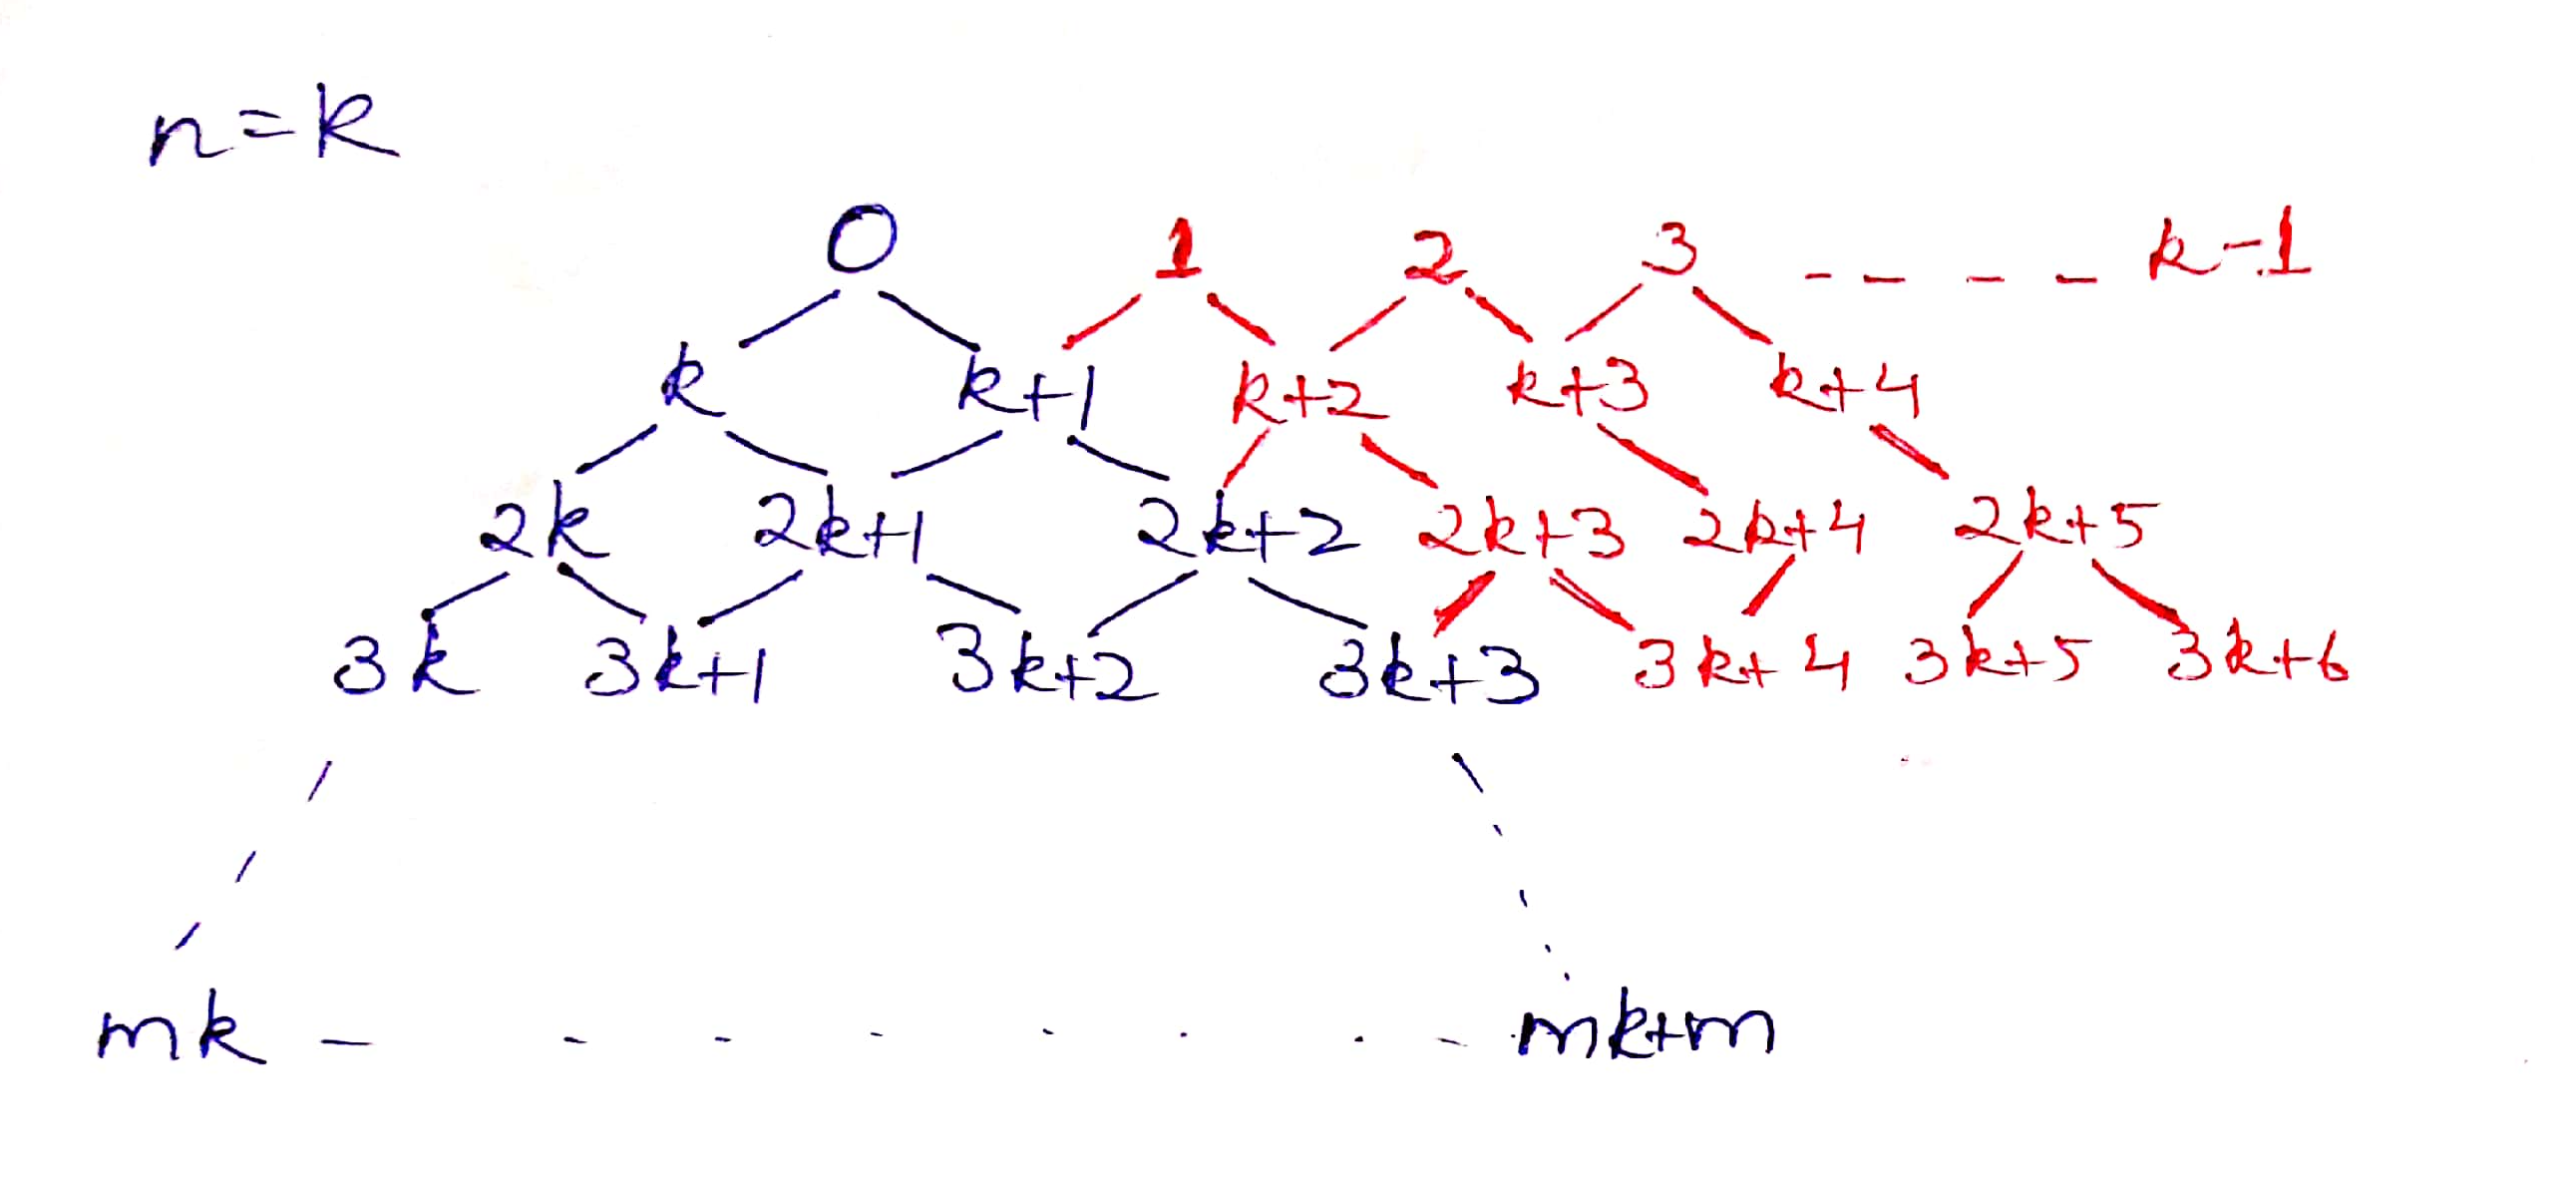 n=k
0 1 2 3 - - - - k-1
k k+1 k+2 k+3 k+4
2k 2k+1 2k+2 2k+3 2k+4 2k+5
3k 3k+1 3k+2 3k+3 3k+4 3k+5 3k+6
mk - - - - - - - - mk+m